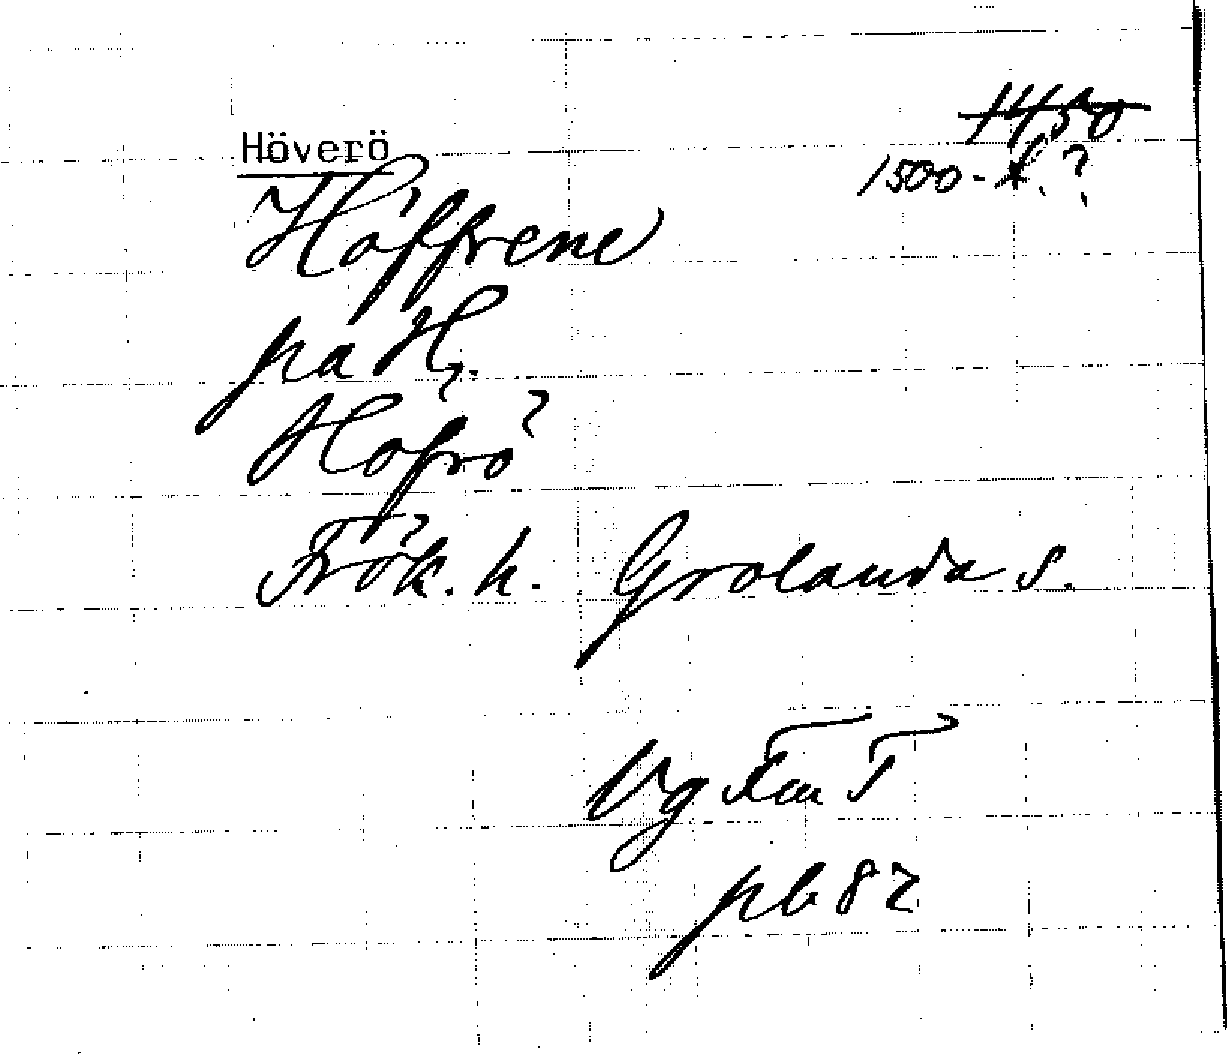 Höverö
1450
1500-t.?
Höffrene
på H.
Hofrö
Frök. h. Grolanda s.
Vg Fm T
pb 82